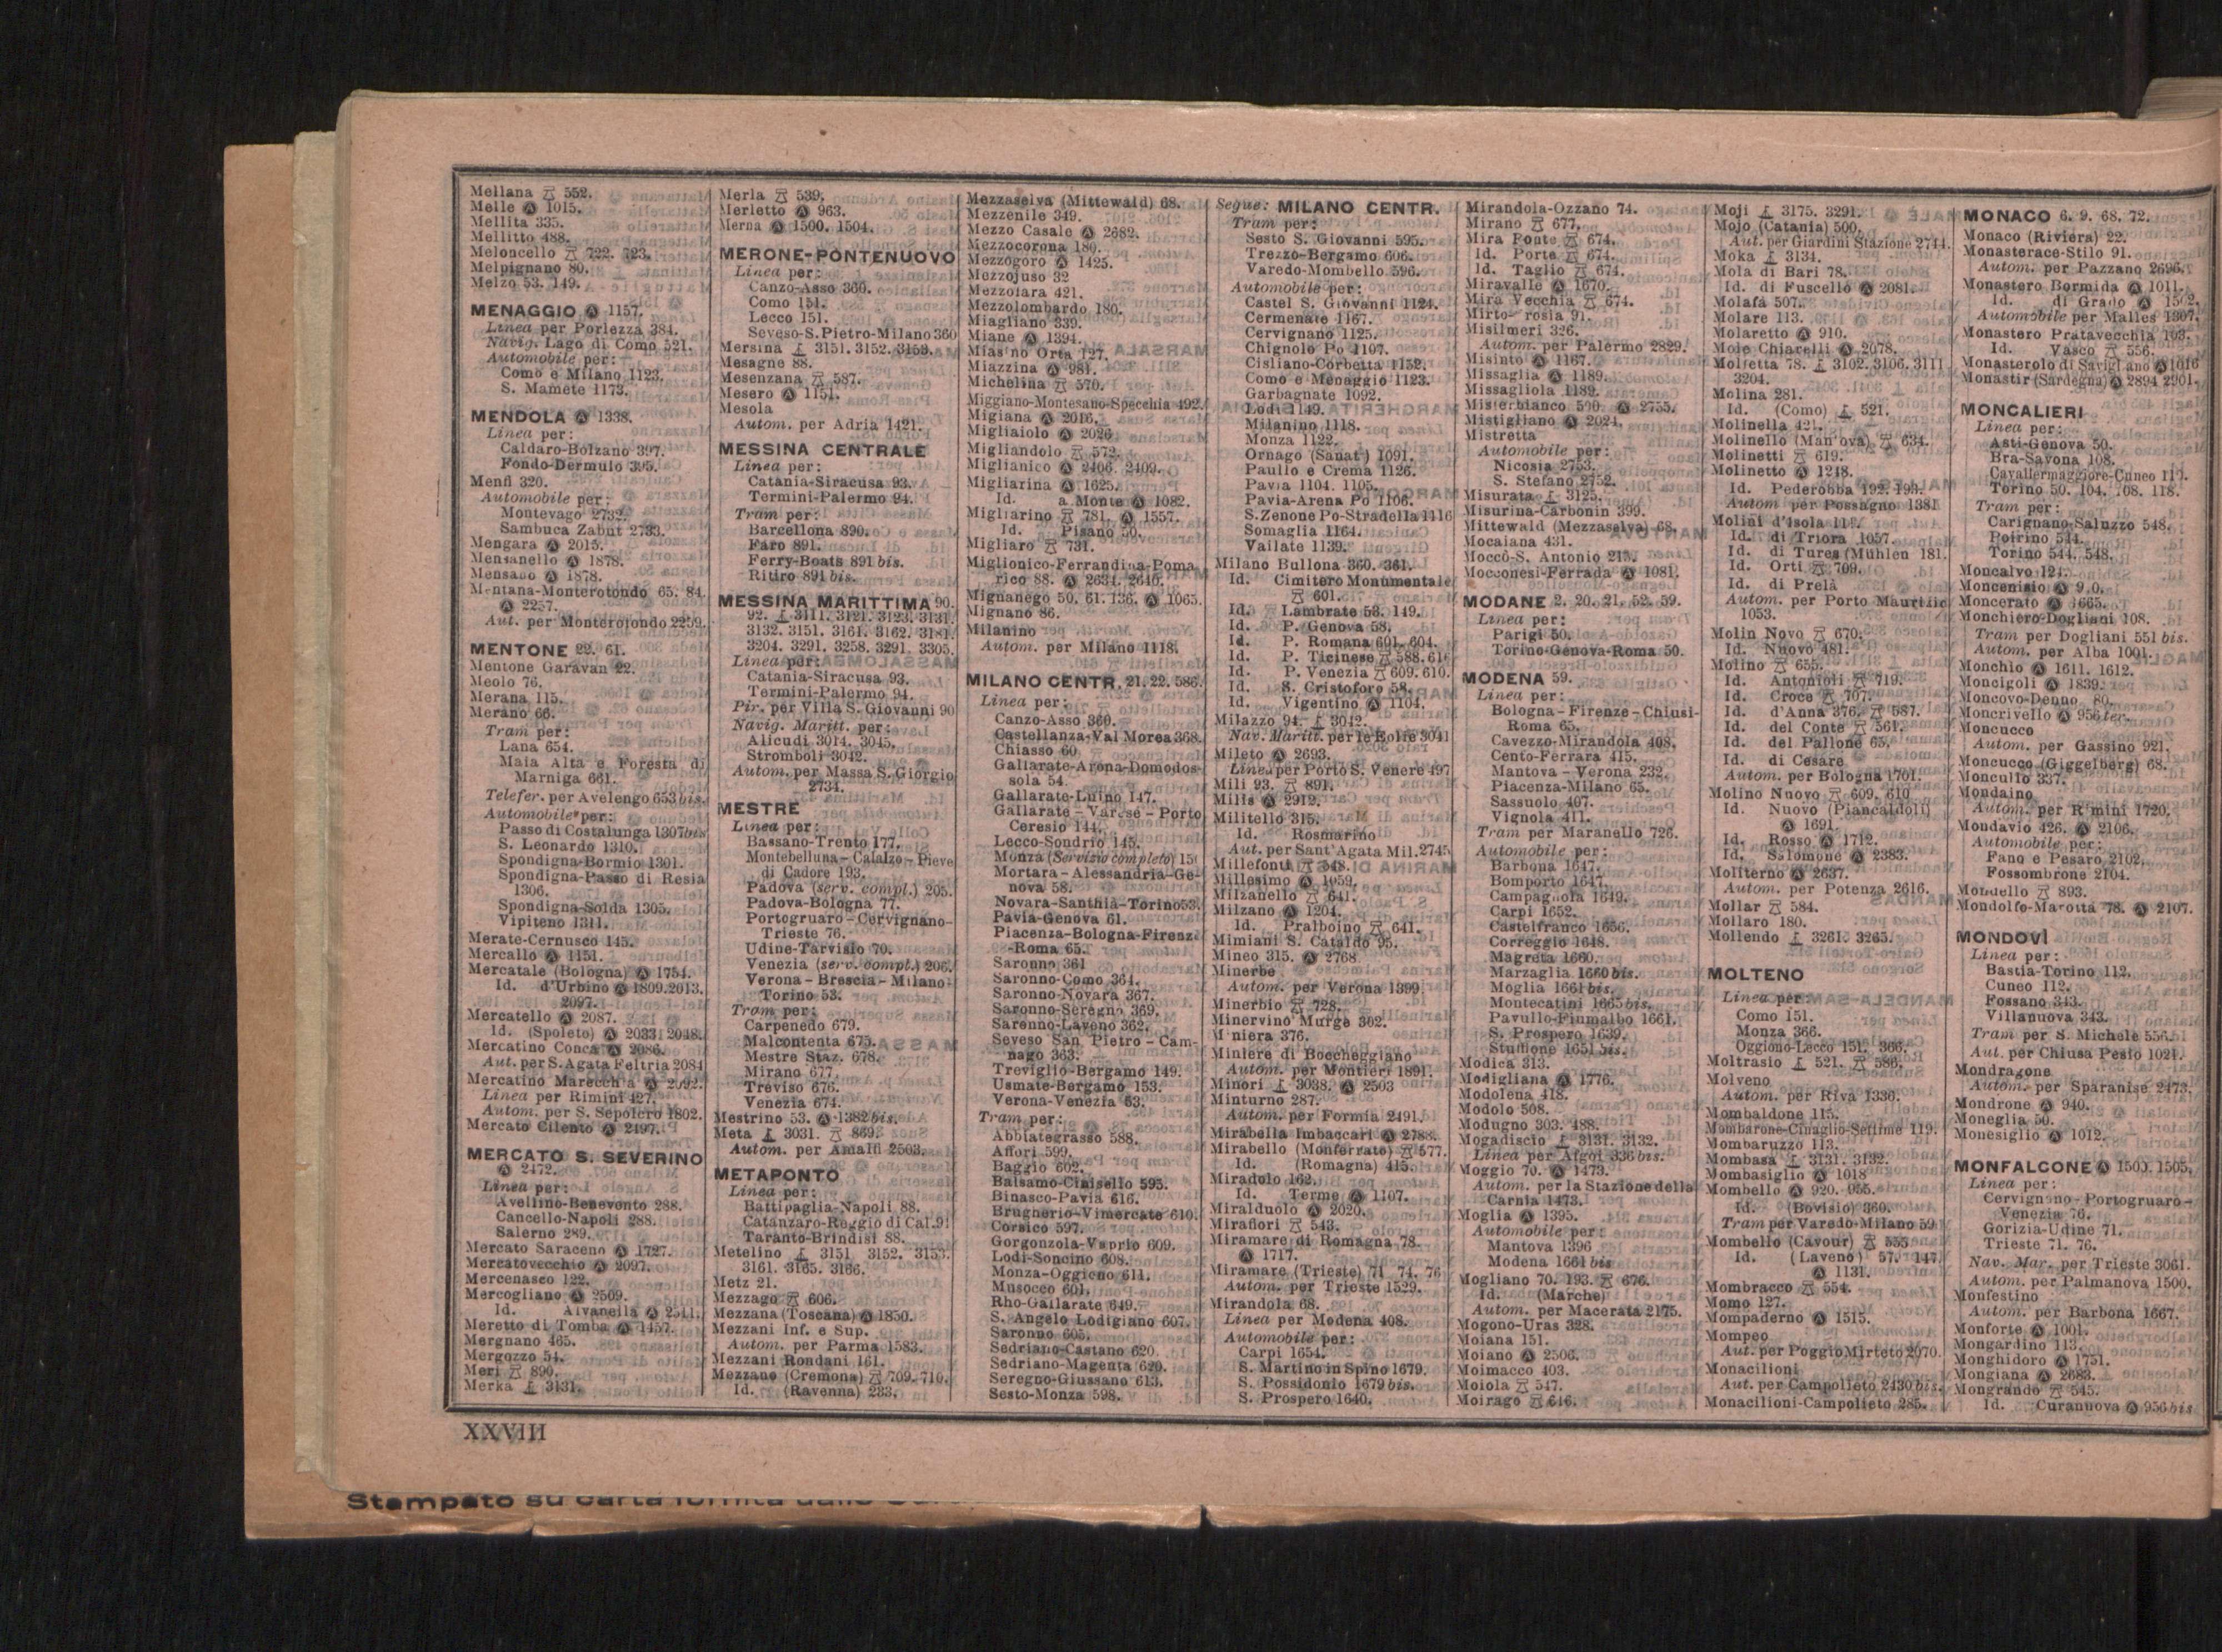 Mellana 552.
Melle Ⓐ 1015.
Mellita 335.
Mellitto 488.
Meloncello 722. 723.
Melpignano 80.
Melzo 53. 149.
MENAGGIO Ⓐ 1157.
Linea per Porlezza 384.
Navig. Lago di Como 521.
Automobile per:
Como e Milano 1123.
S. Mamete 1173.
MENDOLA Ⓐ 1338.
Linea per:
Caldaro-Bolzano 397.
Fondo-Dermulo 395.
Menfi 320.
Automobile per:
Montevago 2732.
Sambuca Zabut 2733.
Mengara Ⓐ 2015.
Mensanello Ⓐ 1878.
Mensano Ⓐ 1878.
Mentana-Monterotondo 65. 84.
Ⓐ 2257.
Aut. per Monterotondo 2259.
MENTONE 22. 61.
Mentone Garavan 22.
Meolo 76.
Merana 115.
Merano 66.
Tram per:
Lana 654.
Maia Alta e Foresta di
Marniga 661.
Telefer. per Avelengo 653 bis.
Automobile per:
Passo di Costalunga 1307bis
S. Leonardo 1310.
Spondigna-Bormio 1301.
Spondigna-Passo di Resia
1306.
Spondigna-Solda 1305.
Vipiteno 1311.
Merate-Cernusco 145.
Mercallo Ⓐ 1151.
Mercatale (Bologna) Ⓐ 1754.
Id. d'Urbino Ⓐ 1809.2013.
2097.
Mercatello Ⓐ 2087.
Id. (Spoleto) Ⓐ 2033. 2048.
Mercatino Conca Ⓐ 2086.
Aut. per S. Agata Feltria 2084
Mercatino Marecchia Ⓐ 2092.
Linea per Rimini 427.
Autom. per S. Sepolcro 1802.
Mercato Cilento Ⓐ 2497.
MERCATO S. SEVERINO
Ⓐ 2472.
Linea per:
Avellino-Benevento 288.
Cancello-Napoli 288.
Salerno 289.
Mercato Saraceno Ⓐ 1727.
Mercatovecchio Ⓐ 2097.
Mercenasco 122.
Mercogliano Ⓐ 2509.
Id. Alvanella Ⓐ 2511.
Meretto di Tomba Ⓐ 1457.
Mergnano 465.
Mergozzo 54.
Merì 890.
Merka 3131.
Merla 539.
Merletto Ⓐ 963.
Merna Ⓐ 1500. 1504.
MERONE-PONTENUOVO
Linea per:
Canzo-Asso 360.
Como 151.
Lecco 151.
Seveso-S.Pietro-Milano 360
Mersina 3151. 3152. 3153.
Mesagne 88.
Mesenzana 587.
Mesero Ⓐ 1151.
Mesola
Autom. per Adria 1421.
MESSINA CENTRALE
Linea per:
Catania-Siracusa 93.
Termini-Palermo 94.
Tram per:
Barcellona 890.
Faro 891.
Ferry-Boats 891 bis.
Ritiro 891 bis.
MESSINA MARITTIMA 90.
92. 3111. 3121. 3123. 3131.
3132. 3151. 3161. 3162. 3181.
3204. 3291. 3258. 3291. 3305.
Linea per:
Catania-Siracusa 93.
Termini-Palermo 94.
Pir. per Villa S. Giovanni 90
Navig. Maritt. per:
Alicudi 3014. 3045.
Stromboli 3042.
Autom. per Massa S. Giorgio
2734.
MESTRE
Linea per:
Bassano-Trento 177.
Montebelluna-Calalzo-Pieve
di Cadore 193.
Padova (serv. compl.) 205.
Padova-Bologna 77.
Portogruaro-Cervignano-
Trieste 76.
Udine-Tarvisio 70.
Venezia (serv. compl.) 206.
Verona-Brescia-Milano-
Torino 53.
Tram per:
Carpenedo 679.
Malcontenta 675.
Mestre Staz. 678.
Mirano 677.
Treviso 676.
Venezia 674.
Mestrino 53. Ⓐ 1382 bis.
Meta 3031. 869.
Autom. per Amalfi 2503.
METAPONTO
Linea per:
Battipaglia-Napoli 88.
Catanzaro-Reggio di Cal. 91
Taranto-Brindisi 88.
Metelino 3151 3152. 3153.
3161. 3165. 3166.
Metz 21.
Mezzago 606.
Mezzana (Toscana) Ⓐ 1850.
Mezzani Inf. e Sup.
Autom. per Parma 1583.
Mezzani Rondani 161.
Mezzano (Cremona) 709. 710.
Id. (Ravenna) 233.
Mezzaselva (Mittewald) 68.
Mezzenile 349.
Mezzo Casale Ⓐ 2682.
Mezzocorona 180.
Mezzogoro Ⓐ 1425.
Mezzojuso 32
Mezzolara 421.
Mezzolombardo 180.
Miagliano 339.
Miane Ⓐ 1394.
Miasino Orta 127.
Miazzina Ⓐ 981.
Michelina 570.
Miggiano-Montesano-Specchia 492.
Migiana Ⓐ 2016.
Migliaiolo Ⓐ 2026
Migliandolo 572.
Miglianico Ⓐ 2406. 2409.
Migliarina Ⓐ 1625.
Id. a Monte Ⓐ 1082.
Migliarino 781. Ⓐ 1557.
Id. Pisano 50.
Migliaro 731.
Miglionico-Ferrandina-Poma
rico 88. Ⓐ 2634. 2640.
Mignanego 50. 61. 136. Ⓐ 1065.
Mignano 86.
Milanino
Autom. per Milano 1118.
MILANO CENTR. 21. 22. 586.
Linea per:
Canzo-Asso 360.
Castellanza-Val Morea 368.
Chiasso 60.
Gallarate-Arona-Domodos-
sola 54.
Gallarate-Luino 147.
Gallarate-Varese-Porto
Ceresio 144.
Lecco-Sondrio 145.
Monza (Servizio completo) 150
Mortara-Alessandria-Ge-
nova 58.
Novara-Santhià-Torino 53.
Pavia-Genova 61.
Piacenza-Bologna-Firenze
-Roma 65.
Saronno 361
Saronno-Como 364.
Saronno-Novara 367.
Saronno-Seregno 369.
Saronno-Laveno 362.
Seveso San Pietro-Cam-
nago 363.
Treviglio-Bergamo 149.
Usmate-Bergamo 153.
Verona-Venezia 53.
Tram per:
Abbiategrasso 588.
Affori 599.
Baggio 602.
Balsamo-Cinisello 595.
Binasco-Pavia 616.
Brugherio-Vimercate 610.
Corsico 597.
Gorgonzola-Vaprio 609.
Lodi-Soncino 608.
Monza-Oggiono 611.
Musocco 601.
Rho-Gallarate 649.
S. Angelo Lodigiano 607.
Saronno 605.
Sedriano-Castano 620.
Sedriano-Magenta 620.
Seregno-Giussano 613.
Sesto-Monza 598.
Segue: MILANO CENTR.
Tram per:
Sesto S. Giovanni 595.
Trezzo-Bergamo 606.
Varedo-Mombello 596.
Automobile per:
Castel S. Giovanni 1124.
Cermenate 1167.
Cervignano 1125.
Chignolo Po 1107.
Cisliano-Corbetta 1152.
Como e Menaggio 1123.
Garbagnate 1092.
Lodi 1149.
Milanino 1118.
Monza 1122.
Ornago (Sanat.) 1091.
Paullo e Crema 1126.
Pavia 1104. 1105.
Pavia-Arena Po 1106.
S.Zenone Po-Stradella 1116
Somaglia 1164.
Vailate 1139.
Milano Bullona 360. 361.
Id. Cimitero Monumentale
601.
Id. Lambrate 53. 149.
Id. P. Genova 58.
Id. P. Romana 601. 604.
Id. P. Ticinese 588. 616
Id. P. Venezia 609. 610.
Id. S. Cristoforo 58.
Id. Vigentino Ⓐ 1104.
Milazzo 94. 3042.
Nav. Maritt. per le Eolie 3041
Mileto Ⓐ 2693.
Linea per Porto S. Venere 497
Mili 93. 891.
Milis Ⓐ 2912.
Militello 315.
Id. Rosmarino
Aut. per Sant'Agata Mil. 2745
Millefonti 548.
Millesimo Ⓐ 1059.
Milzanello 641.
Milzano Ⓐ 1204.
Id. Pralboino 641.
Mimiani S. Cataldo 95.
Mineo 315. Ⓐ 2768.
Minerbe
Autom. per Verona 1399.
Minerbio 728.
Minervino Murge 302.
Miniera 376.
Miniere di Boccheggiano
Autom. per Montieri 1891.
Minori 3038. Ⓐ 2503
Minturno 287.
Autom. per Formia 2491.
Mirabella Imbaccari Ⓐ 2788.
Mirabello (Monferrato) 577.
Id. (Romagna) 415.
Miradolo 162.
Id. Terme Ⓐ 1107.
Miralduolo Ⓐ 2020.
Mirafiori 543.
Miramare di Romagna 78.
Ⓐ 1717.
Miramare (Trieste) 71. 74. 76
Autom. per Trieste 1529.
Mirandola 68.
Linea per Modena 408.
Automobile per:
Carpi 1654.
S. Martino in Spino 1679.
S. Possidonio 1679 bis.
S. Prospero 1640.
Mirandola-Ozzano 74.
Mirano 677.
Mira Ponte 674.
Id. Porte 674.
Id. Taglio 674.
Miravalle Ⓐ 1670.
Mira Vecchia 674.
Mirto rosia 91.
Misilmeri 326.
Autom. per Palermo 2829.
Misinto Ⓐ 1167.
Missaglia Ⓐ 1189.
Missagliola 1189.
Misterbianco 500. Ⓐ 2755.
Mistigliano Ⓐ 2024.
Mistretta
Automobile per:
Nicosia 2753.
S. Stefano 2752.
Misurata 3125.
Misurina-Carbonin 399.
Mittewald (Mezzaselva) 68.
Mocaiana 431.
Moccò-S. Antonio 215.
Mocconesi-Ferrada Ⓐ 1081.
MODANE 2. 20. 21. 52. 59.
Linea per:
Parigi 50.
Torino-Genova-Roma 50.
MODENA 59.
Linea per:
Bologna-Firenze-Chiusi-
Roma 65.
Cavezzo-Mirandola 408.
Cento-Ferrara 415.
Mantova-Verona 232.
Piacenza-Milano 65.
Sassuolo 407.
Vignola 411.
Tram per Maranello 726.
Automobile per:
Barbona 1647.
Bomporto 1641.
Campagnola 1649.
Carpi 1652.
Castelfranco 1656.
Correggio 1648.
Magreta 1660.
Marzaglia 1660 bis.
Moglia 1661 bis.
Montecatini 1665 bis.
Pavullo-Fiumalbo 1661.
S. Prospero 1639.
Stuffione 1651 bis.
Modica 313.
Modigliana Ⓐ 1776.
Modolena 418.
Modolo 508.
Modugno 303. 488.
Mogadiscio 3131. 3132.
Linea per Afgoi 336 bis.
Moggio 70. Ⓐ 1473.
Autom. per la Stazione della
Carnia 1473.
Moglia Ⓐ 1395.
Automobile per:
Mantova 1396
Modena 1661 bis
Mogliano 70. 193. 676.
Id. (Marche)
Autom. per Macerata 2175.
Mogono-Uras 328.
Moiana 151.
Moiano Ⓐ 2506.
Moimacco 403.
Moiola 547.
Moirago 616.
Moji 3175. 3291.
Mojo (Catania) 500.
Aut. per Giardini Stazione 2741.
Moka 3134.
Mola di Bari 78.
Id. di Fuscello Ⓐ 2081.
Molafà 507.
Molare 113.
Molaretto Ⓐ 910.
Mole Chiarelli Ⓐ 2078.
Molfetta 78. 3102. 3106. 3111
3204.
Molina 281.
Id. (Como) 521.
Molinella 421.
Molinello (Mantova) 634.
Molinetti 619.
Molinetto Ⓐ 1248.
Id. Pederobba 192. 193.
Autom per Possagno 1381
Molini d'Isola 118.
Id. di Triora 1057.
Id. di Tures (Mühlen 181.
Id. Orti 709.
Id. di Prelà
Autom. per Porto Maurizio
1053.
Molin Novo 670.
Id. Nuovo 481.
Molino 655.
Id. Antonioli 719.
Id. Croce 707.
Id. d'Anna 376. 587.
Id. del Conte 561.
Id. del Pallone 65.
Id. di Cesare
Autom. per Bologna 1701.
Molino Nuovo 609. 610
Id. Nuovo (Piancaldoli)
Ⓐ 1691.
Id. Rosso Ⓐ 1712.
Id. Salomone Ⓐ 2383.
Moliterno Ⓐ 2637.
Autom. per Potenza 2616.
Mollar 584.
Mollaro 180.
Mollendo 3261. 3265.
MOLTENO
Linea per:
Como 151.
Monza 366.
Oggiono-Lecco 151. 366.
Moltrasio 521. 586.
Molveno
Autom. per Riva 1336.
Mombaldone 115.
Mombarone-Cinaglio-Settime 119.
Mombaruzzo 113.
Mombasa 3131. 3132.
Mombasiglio Ⓐ 1018
Mombello Ⓐ 920. 955.
Id. (Bovisio) 360.
Tram per Varedo-Milano 59
Mombello (Cavour) 555
Id. (Laveno) 57. 147.
Ⓐ 1131.
Mombracco 554.
Momo 127.
Mompaderno Ⓐ 1515.
Mompeo
Aut. per Poggio Mirteto 2070.
Monacilioni
Aut. per Campolieto 2430 bis.
Monacilioni-Campolieto 285.
MONACO 6. 9. 68. 72.
Monaco (Riviera) 22.
Monasterace-Stilo 91.
Autom. per Pazzano 2696.
Monastero Bormida Ⓐ 1011.
Id. di Grado Ⓐ 1502.
Automobile per Malles 1307.
Monastero Pratavecchia 103.
Id. Vasco 556.
Monasterolo di Savigliano Ⓐ 1016
Monastir (Sardegna) Ⓐ 2894 2901.
MONCALIERI
Linea per:
Asti-Genova 50.
Bra-Savona 108.
Cavallermaggiore-Cuneo 110.
Torino 50. 104. 108. 118.
Tram per:
Carignano-Saluzzo 548.
Poirino 544.
Torino 544. 548.
Moncalvo 124.
Moncenisio Ⓐ 9.0.
Moncerato Ⓐ 1665.
Monchiero-Dogliani 108.
Tram per Dogliani 551 bis.
Autom. per Alba 1001.
Monchio Ⓐ 1611. 1612.
Moncigoli Ⓐ 1839.
Moncovo-Denno 80.
Moncrivello Ⓐ 956 ter.
Moncucco
Autom. per Gassino 921.
Moncucco (Giggelberg) 68.
Moncullo 337.
Mondaino
Autom. per Rimini 1720.
Mondavio 426. Ⓐ 2106.
Automobile per:
Fano e Pesaro 2102.
Fossombrone 2104.
Mondello 893.
Mondolfo-Marotta 78. Ⓐ 2107.
MONDOVÌ
Linea per:
Bastia-Torino 112.
Cuneo 112.
Fossano 343.
Villanuova 343.
Tram per S. Michele 556.
Aut. per Chiusa Pesio 1021.
Mondragone
Autom. per Sparanise 2473.
Mondrone Ⓐ 940.
Moneglia 50.
Monesiglio Ⓐ 1012.
MONFALCONE Ⓐ 1500. 1505.
Linea per:
Cervignano-Portogruaro-
Venezia 76.
Gorizia-Udine 71.
Trieste 71. 76.
Nav. Mar. per Trieste 3061.
Autom. per Palmanova 1500.
Monfestino
Autom. per Barbona 1667.
Monforte Ⓐ 1001.
Mongardino 113.
Monghidoro Ⓐ 1751.
Mongiana Ⓐ 2683.
Mongrando 545.
Id. Curanuova Ⓐ 956 bis
XXVIII
Stampato su carta fornita dalle